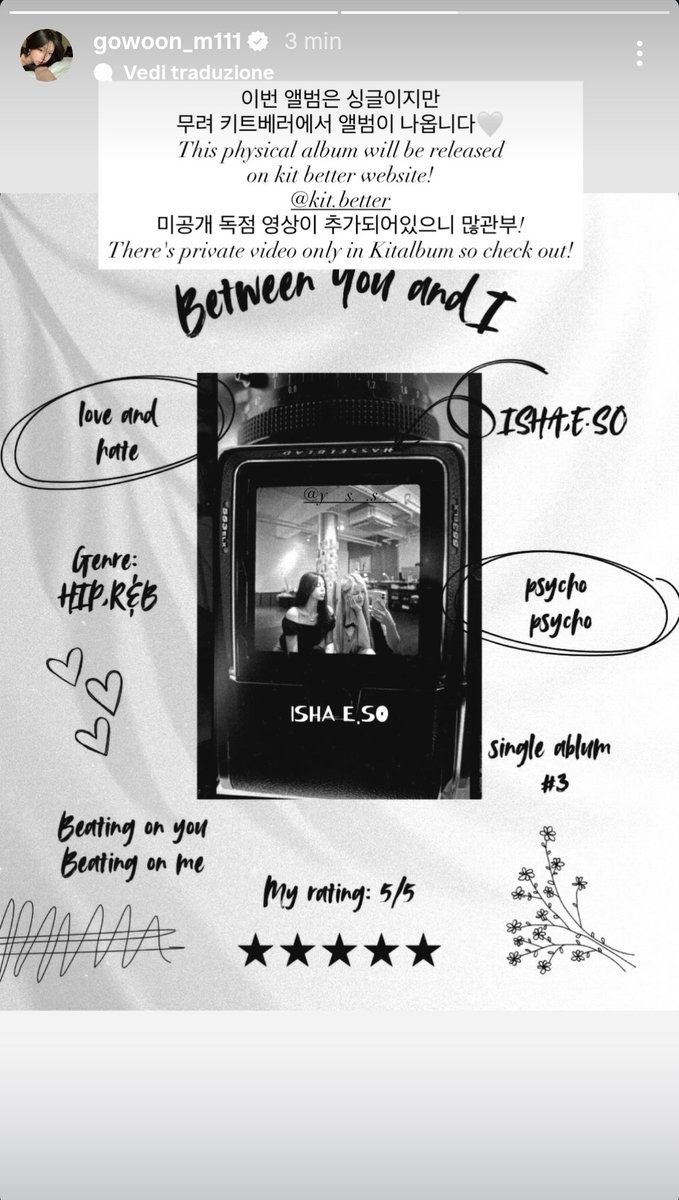 gowoon_m111 3 min
Vedi traduzione
이번 앨범은 싱글이지만
무려 키트베러에서 앨범이 나옵니다🤍
This physical album will be released
on kit better website!
@kit.better
미공개 독점 영상이 추가되어있으니 많관부!
There's private video only in Kitalbum so check out!
Between You and I
love and
hate
ISHA,E.SO
HASSELBLAD
Genre:
HIP,R&B
psycho
psycho
ISHA E.SO
single ablum
#3
Beating on you
Beating on me
My rating: 5/5